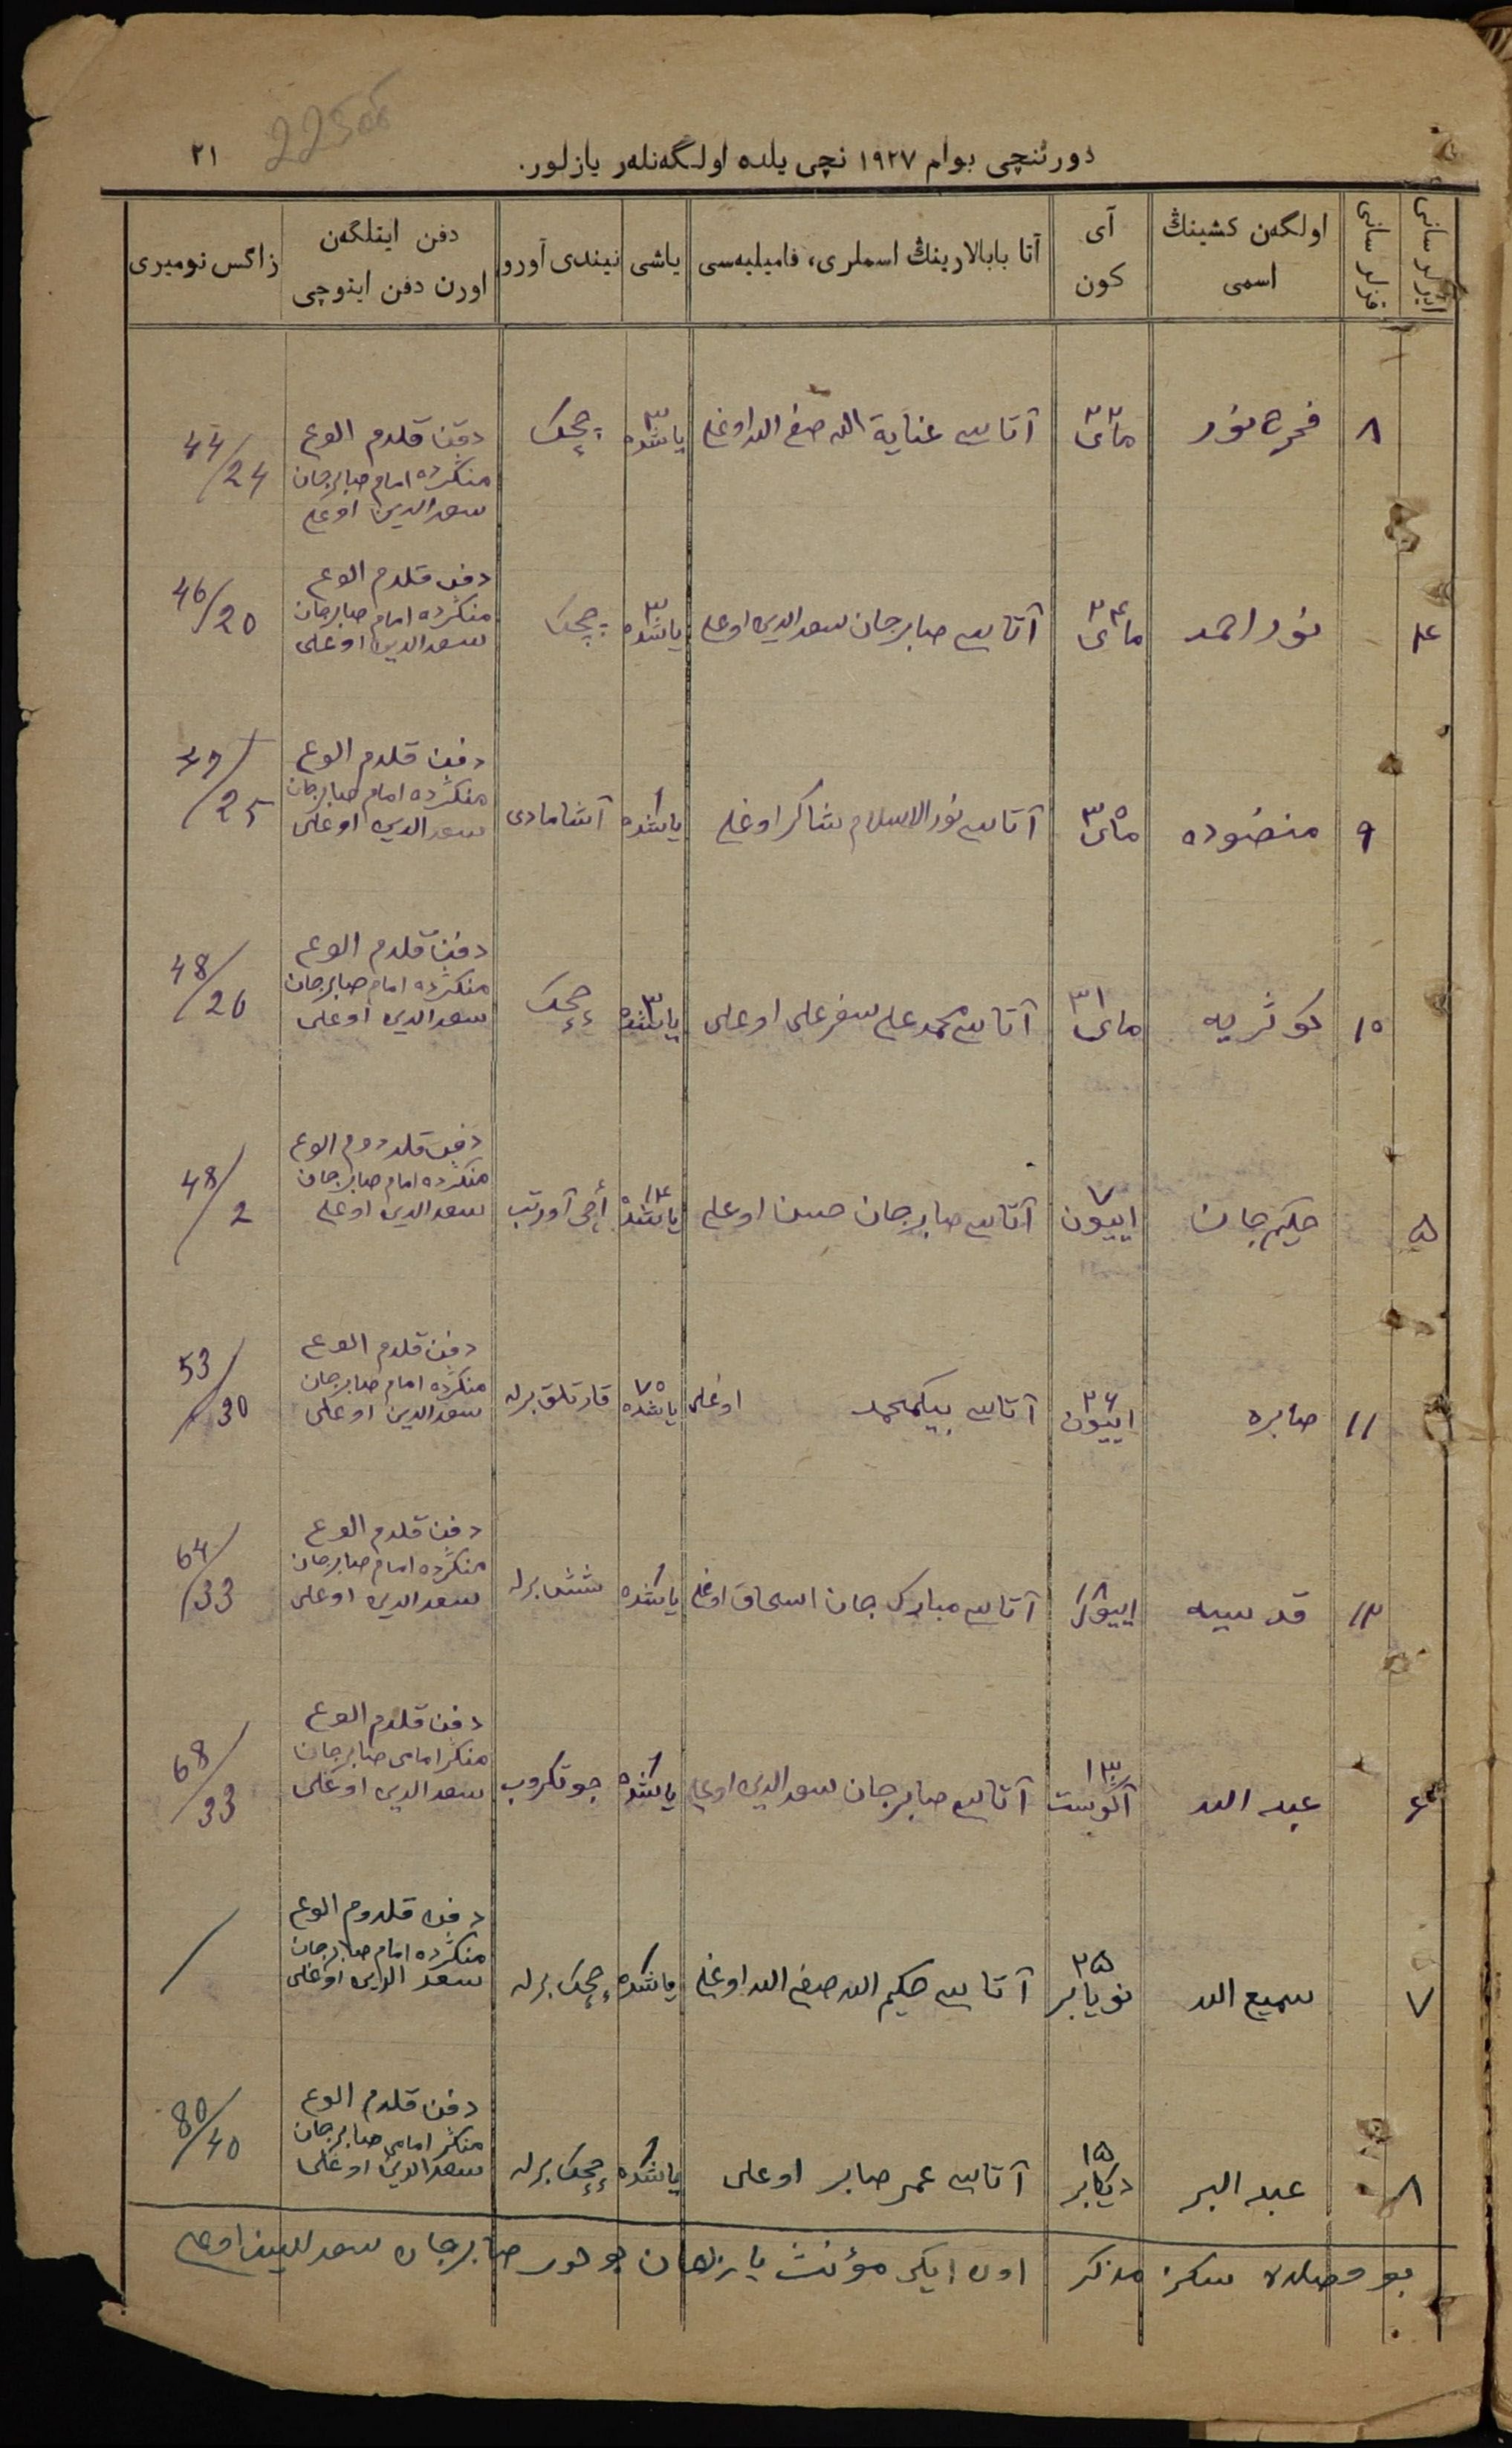 22об
٢١
دورتنچی بوام ۱۹۲۷ نچی یلده اولـگەنلەر یازلور.
ایرلر سانی
قزلر سانی
اولگەن كشینڭ
اسمی
آی
كون
آتا بابالارینڭ اسملری، فامیلیەسی
یاشی
نیندی آورو
دفن ایتلگەن
اورن دفن ایتوچی
زاگس نومیری
٨
ماى
آتاسى عناية الله صفى الله اوغلى
٣
ياشنده
چچك
دفن قلدم الوغ
منگرده امام صابرجان
سعدالدين اوغلى
44/24
٤
نور احمد
٢٤
ماى
آتاسى صابرجان سعدالدين اوغلى
٣
ياشنده
چچك
دفن قلدم الوغ
منگرده امام صابرجان
سعدالدين اوغلى
46/20
٩
ماى
آتاسى نورالاسلام شاكر اوغلى
١
ياشنده
آشامادى
دفن قلدم الوغ
منگرده امام صابرجان
سعدالدين اوغلى
47/25
١٠
كوثريه
٣١
ماى
آتاسى محمد على سفرعلى اوغلى
٣
ياشنده
چچك
دفن قلدم الوغ
منگرده امام صابرجان
سعدالدين اوغلى
48/26
٥
حكيم جان
٧
ايیون
آتاسى صابرجان حسن اوغلى
١٤
ياشنده
دفن قلدم الوغ
منگرده امام صابرجان
سعدالدين اوغلى
48/2
١١
صابره
٢٦
ايیون
آتاسى بيكمحمد اوغلى
٧٥
ياشنده
قارتلق برله
دفن قلدم الوغ
منگرده امام صابرجان
سعدالدين اوغلى
53/30
١٢
قدسيه
١٨
ايیول
آتاسى مبارك جان اسحاق اوغلى
١
ياشنده
شش برله
دفن قلدم الوغ
منگرده امام صابرجان
سعدالدين اوغلى
64/33
٦
عبد الله
١٣
آگوست
آتاسى صابرجان سعدالدين اوغلى
١
ياشنده
يوتكروب
دفن قلدم الوغ
منگر امامى صابرجان
سعدالدين اوغلى
68/33
٧
سميع الله
٢٥
نويابر
آتاسى حكيم الله صفى الله اوغلى
١
ياشنده
چچك برله
دفن قلدوم الوغ
منگرده امام صابرجان
سعد الدين اوغلى
/
٨
عبد البر
١٥
ديكابر
آتاسى عمر صابر اوغلى
١
ياشنده
چچك برله
دفن قلدم الوغ
منگر امامى صابرجان
سعدالدين اوغلى
80/40
بو سكز مذكر اون ايكى مؤنث يازلغان صابرجان سعدالدين اوغلى